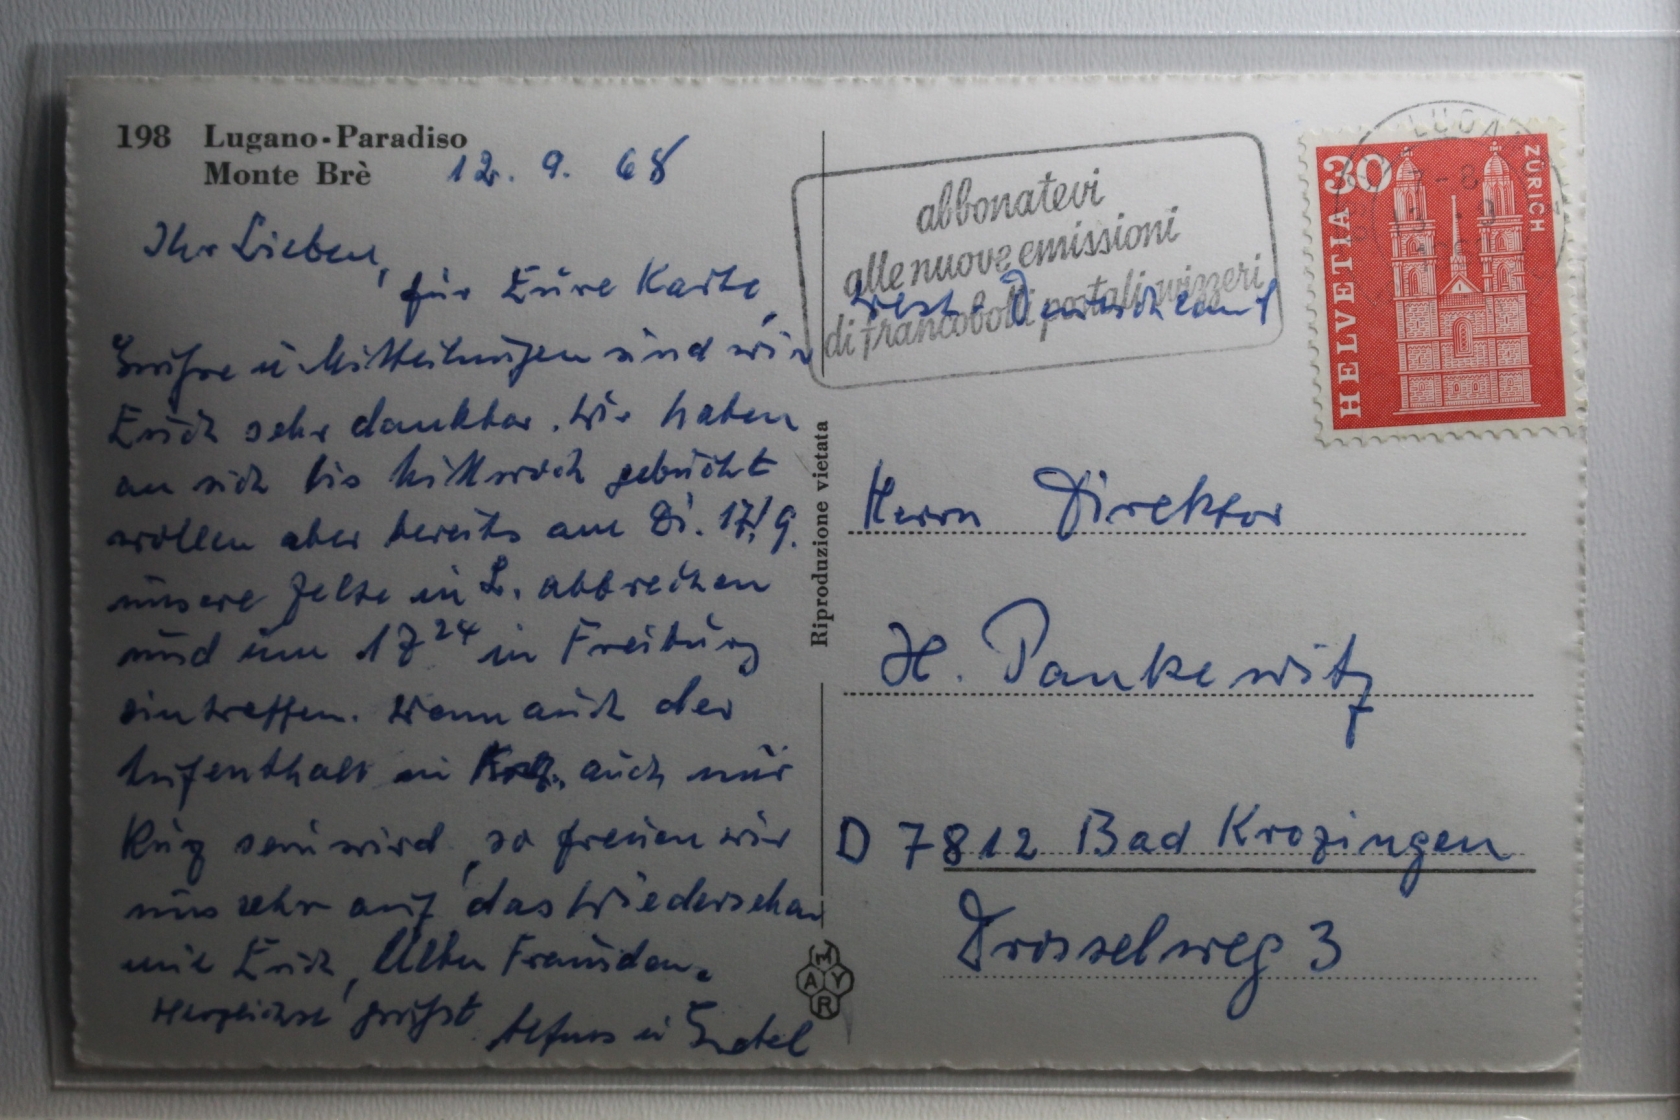 198 Lugano-Paradiso
Monte Brè
12. 9. 68
Ihr Lieben,
für Eure Karte,
Grüße u. Mitteilungen sind wir
Euch sehr dankbar. Wir haben
an sich bis Mittwoch gebucht
wollen aber bereits am Di. 17./9.
unsere Zelte in L. abbrechen
und um 17 24 in Freiburg
eintreffen. Wenn auch der
Aufenthalt in Krz. auch nur
kurz sein wird, so freuen wir
uns sehr auf das Wiedersehen
mit Euch, Alten Freunden.
Herzlichst grüßt
Riproduzione vietata
MAYR
abbonatevi
alle nuove emissioni
di francobolli postali svizzeri
West-Deutschland
HELVETIA 30
ZÜRICH
Herrn Direktor
H. Pankewitz
D 7812 Bad Krozingen
Drosselweg 3